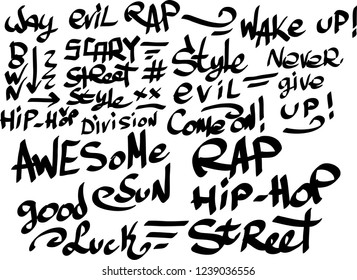 Way evil RAP WAKE UP!
B SCARY Style Never
W Street # evil give
N Style xx UP!
HIP-HOP Division Come on!
AWESOMe RAP
good SUN HIP-HOP
Luck StReet
shutterstock.com · 1239036556